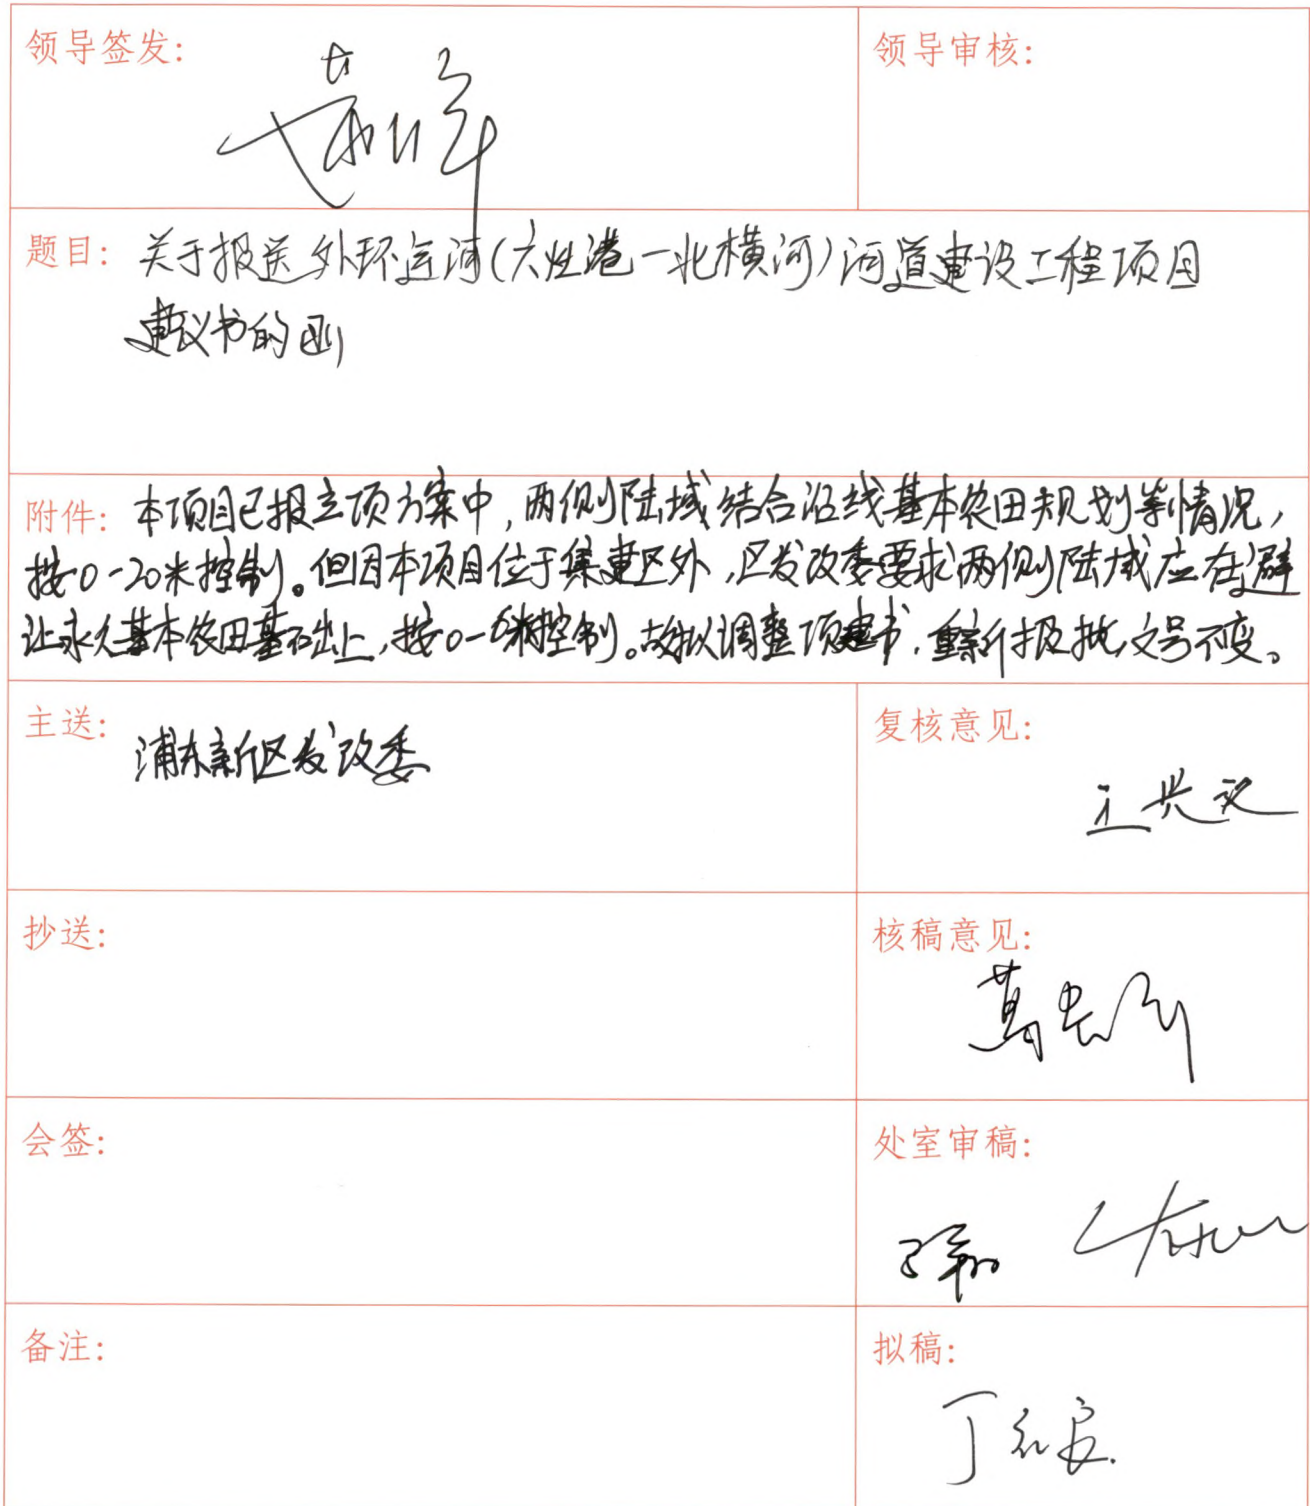 领导签发:
领导审核:
题目: 关于报送外环运河(六灶港一北横河)河道建设工程项目
建议书的函
附件: 本项目已报立项方案中,两侧陆域结合沿线基本农田规划等情况,
按0-20米控制。但因本项目位于集建区外,区发改委要求两侧陆域应在避
让永久基本农田基础上,按0-6米控制。故拟调整项建书,重新报批,文号不变。
主送: 浦东新区发改委
复核意见:
抄送:
核稿意见:
会签:
处室审稿:
备注:
拟稿: